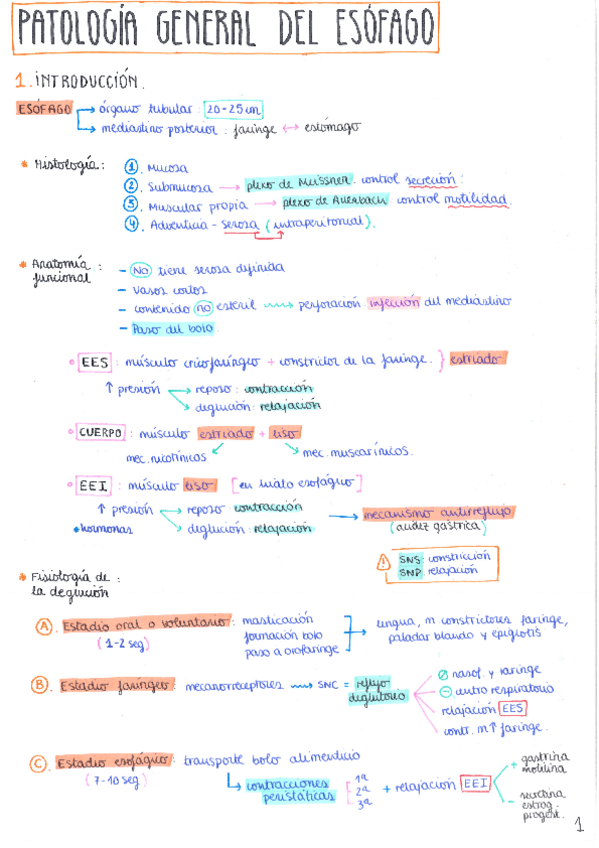 PATOLOGÍA GENERAL DEL ESÓFAGO
1. INTRODUCCIÓN.
ESÓFAGO → órgano tubular: 20-25 cm
→ mediastino posterior: faringe ↔ estómago
* Histología:
1. Mucosa
2. Submucosa → plexo de Meissner. control secreción.
3. Muscular propia → plexo de Auerbach control motilidad.
4. Adventicia - Serosa (intraperitonial).
* Anatomía funcional:
- NO tiene serosa definida
- Vasos cortos
- contenido NO estéril → perforación infección del mediastino
- Paso del bolo
EES: músculo cricofaríngeo + constrictor de la faringe. } estriado
↑ presión → reposo: contracción
→ deglución: relajación
CUERPO: músculo estriado + liso
mec. nicotínicos mec. muscarínicos.
EEI: músculo liso [en hiato esofágico]
↑ presión → reposo contracción → mecanismo antirreflujo
• hormonas → deglución: relajación (acidez gástrica)
! SNS: constricción
SNP: relajación
* Fisiología de la deglución:
A. Estadio oral o voluntario: masticación
(1-2 seg) formación bolo → lengua, m constrictores faringe,
paso a orofaringe paladar blando y epiglotis
B. Estadio faríngeo: mecanorreceptores → SNC = reflejo deglutorio
∅ nasof. y laringe
⊖ centro respiratorio
relajación EES
contr. m↑ faringe.
C. Estadio esofágico: transporte bolo alimenticio
(7-10 seg) → contracciones peristálticas [1ª 2ª 3ª + relajación EEI
+ gastrina
motilina
- secretina
estrog.
progest.
1